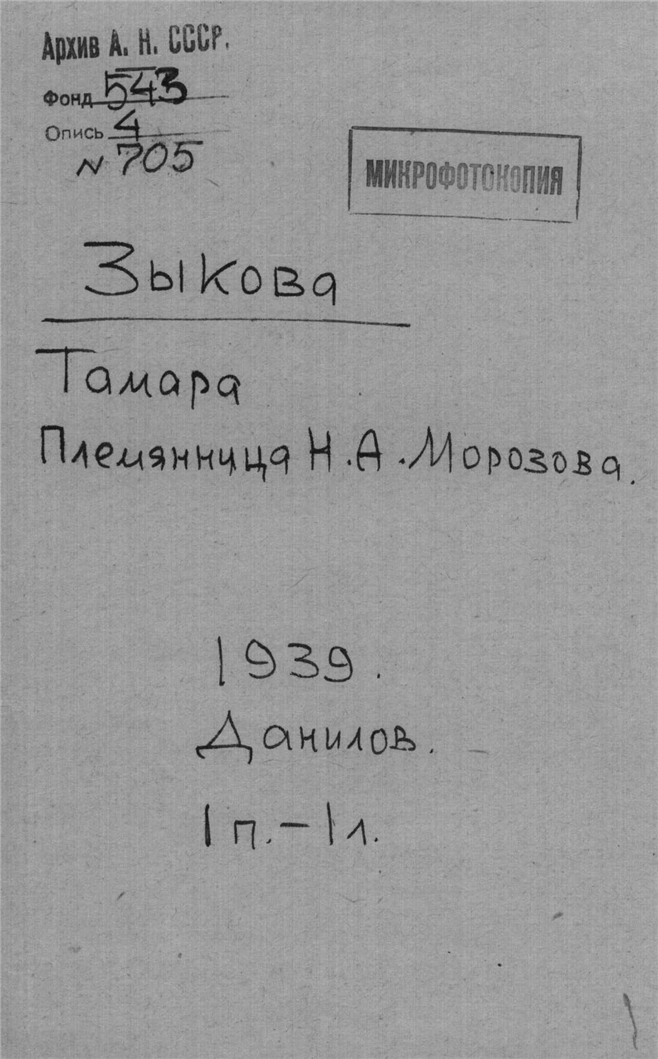 Архив А. Н. СССР.
Фонд 543
Опись 4
N 705
МИКРОФОТОКОПИЯ
Зыкова
Тамара
Племянница Н.А.Морозова.
1939.
Данилов.
1п.-1л.